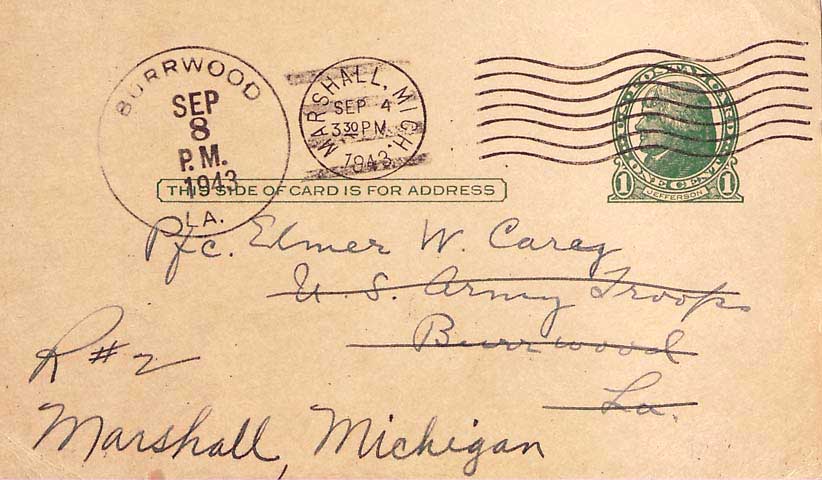 BURRWOOD
SEP
8
P.M.
1943
LA.
MARSHALL, MICH.
SEP 4
3 30 PM
1943
U.S. POSTAL CARD
ONE CENT
1 JEFFERSON 1
THIS SIDE OF CARD IS FOR ADDRESS
Pfc. Elmer W. Carey
U. S. Army Troops
Burrwood
La.
R #2
Marshall, Michigan